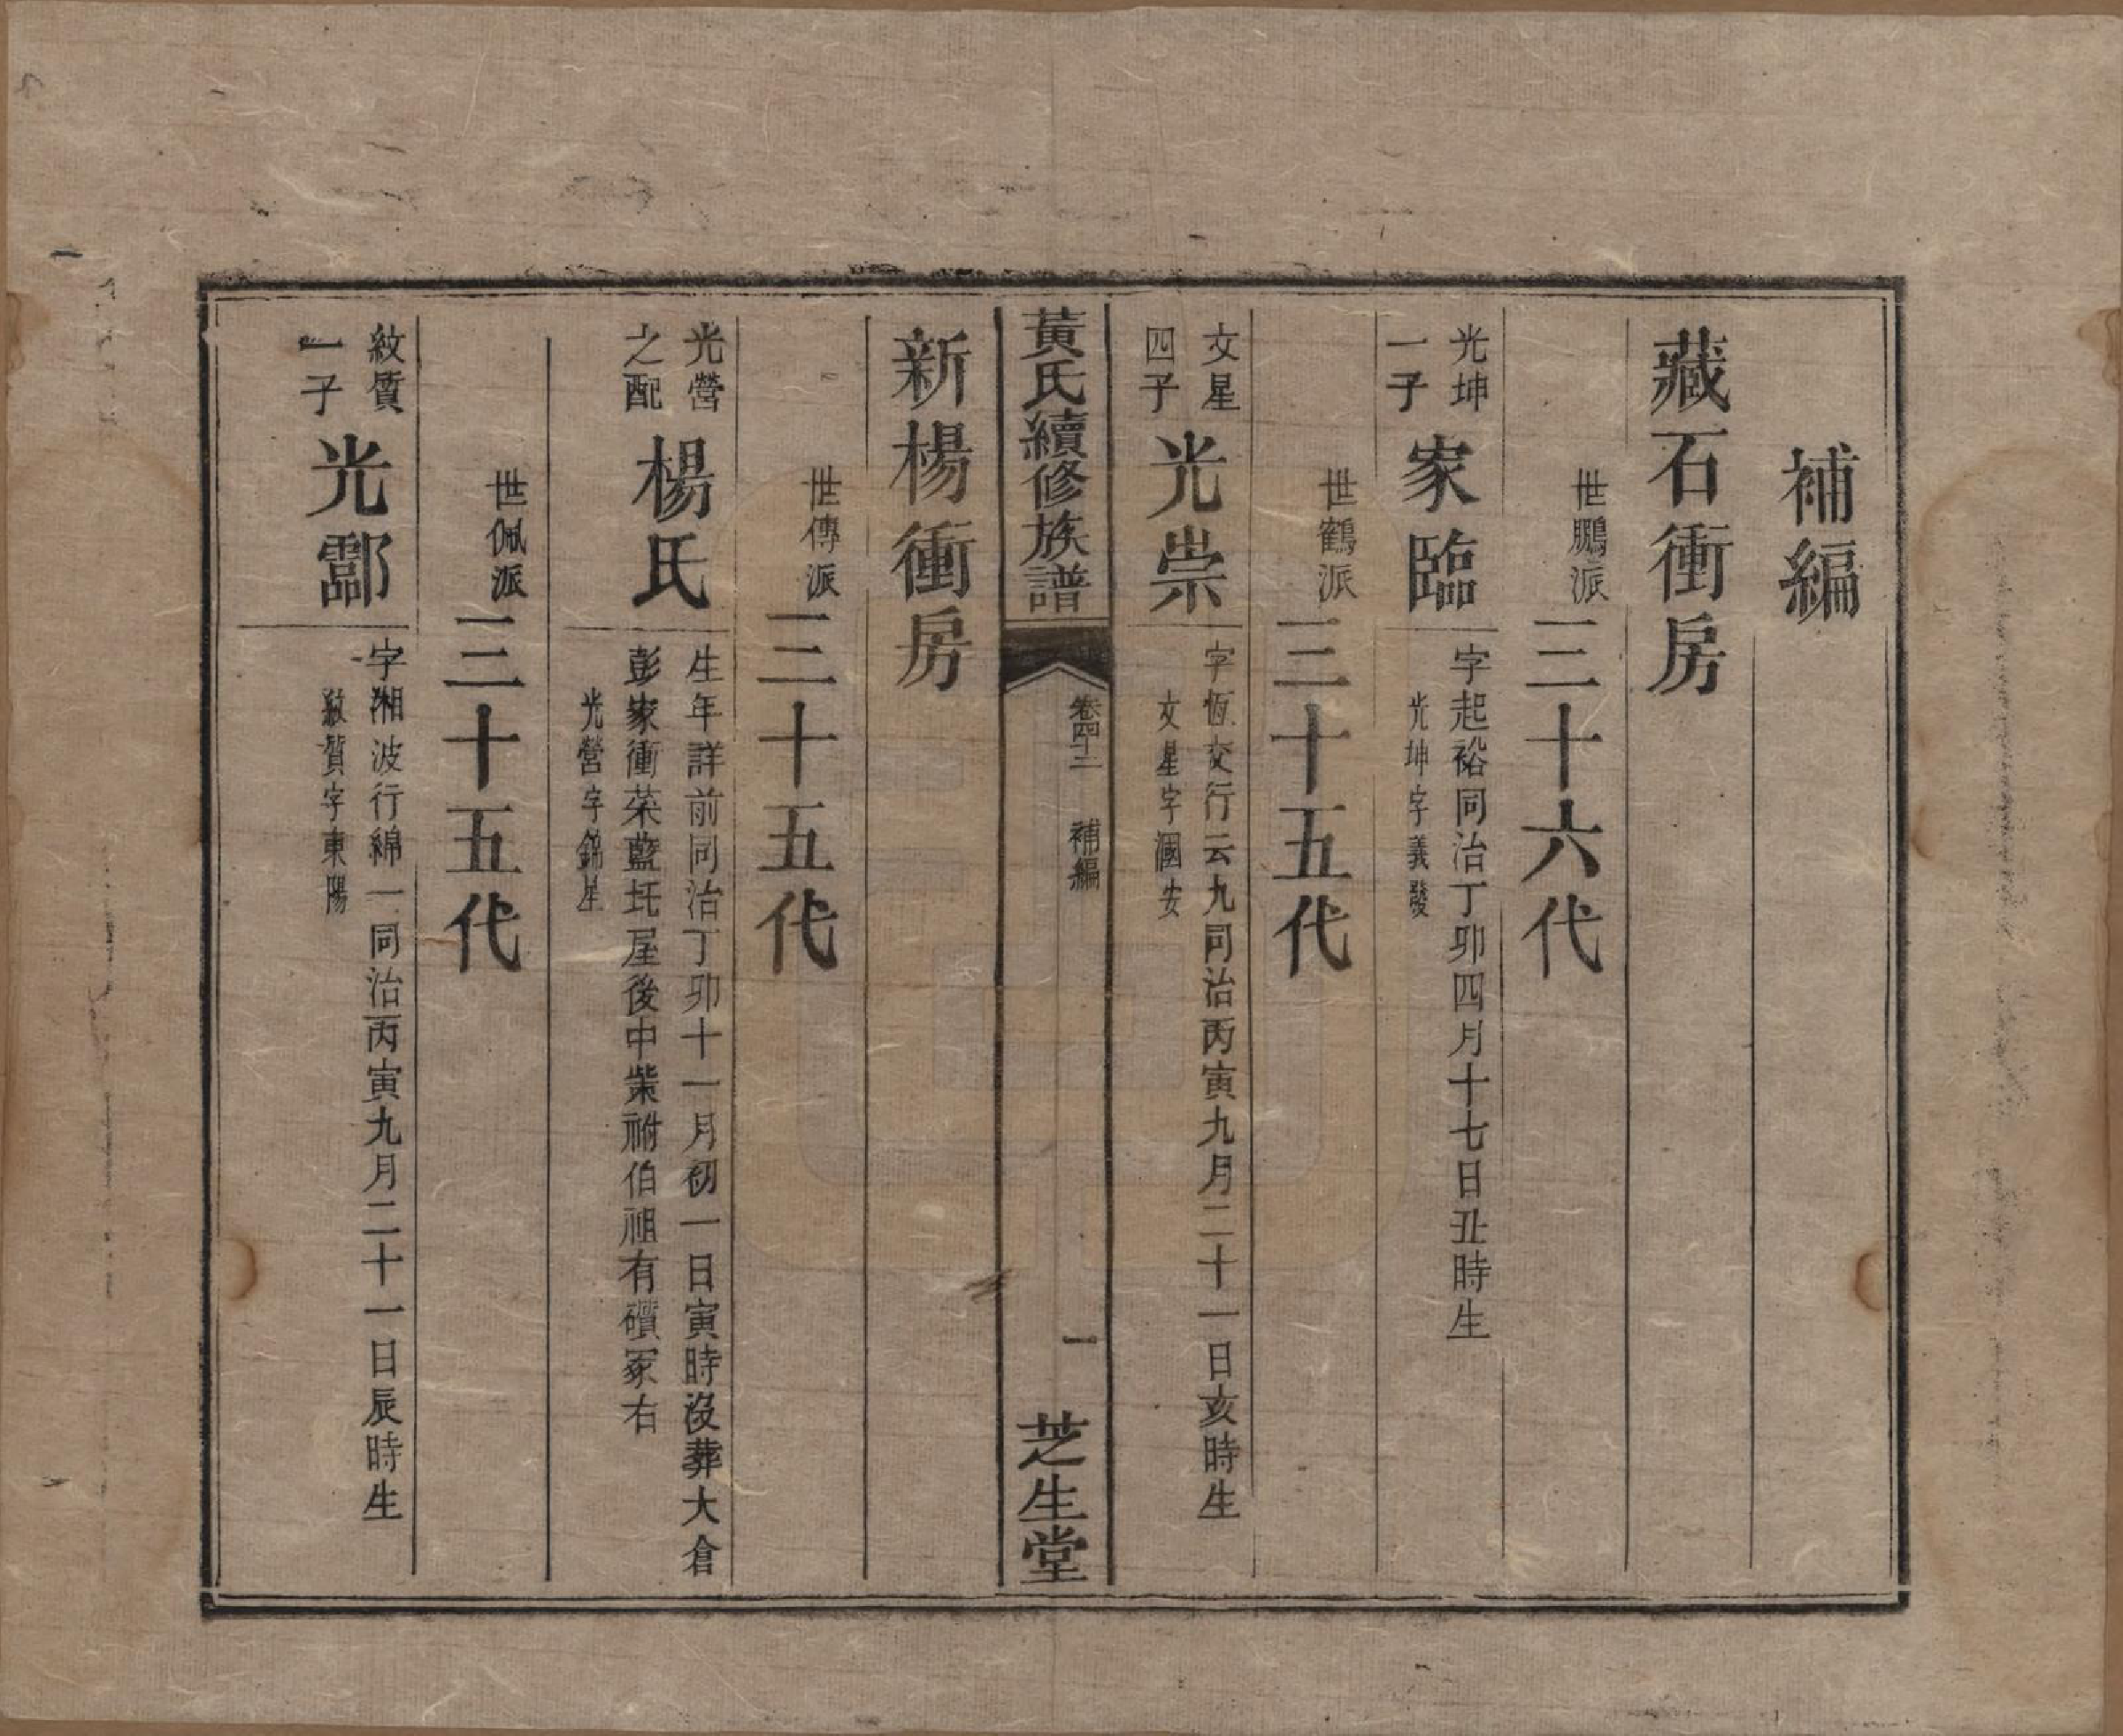 補編
藏石衝房
世鵬派
三十六代
光坤
一子
家臨
字起裕同治丁卯四月十七日丑時生
光坤字義發
世鶴派
三十五代
文星
四子
光崇
字恆交行云九同治丙寅九月二十一日亥時生
文星字國安
黃氏續修族譜
卷四十二
補編
一
芝生堂
新楊衝房
世傳派
三十五代
光營
之配
楊氏
生年詳前同治丁卯十一月初一日寅時沒葬大倉
彭家衝菜藍圫屋後中葉祔伯祖有礩冢右
光營字錦星
世佩派
三十五代
紋質
一子
光酃
字湘波行綿一同治丙寅九月二十一日辰時生
紋質字東陽